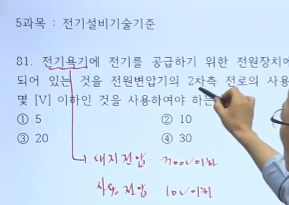 5과목 : 전기설비기술기준
81. 전기욕기에 전기를 공급하기 위한 전원장치에
되어 있는 것을 전원변압기의 2차측 전로의 사용
몇 [V] 이하인 것을 사용하여야 하는
① 5 ② 10
③ 20 ④ 30
대지전압 300V이하
사용전압 10V이하